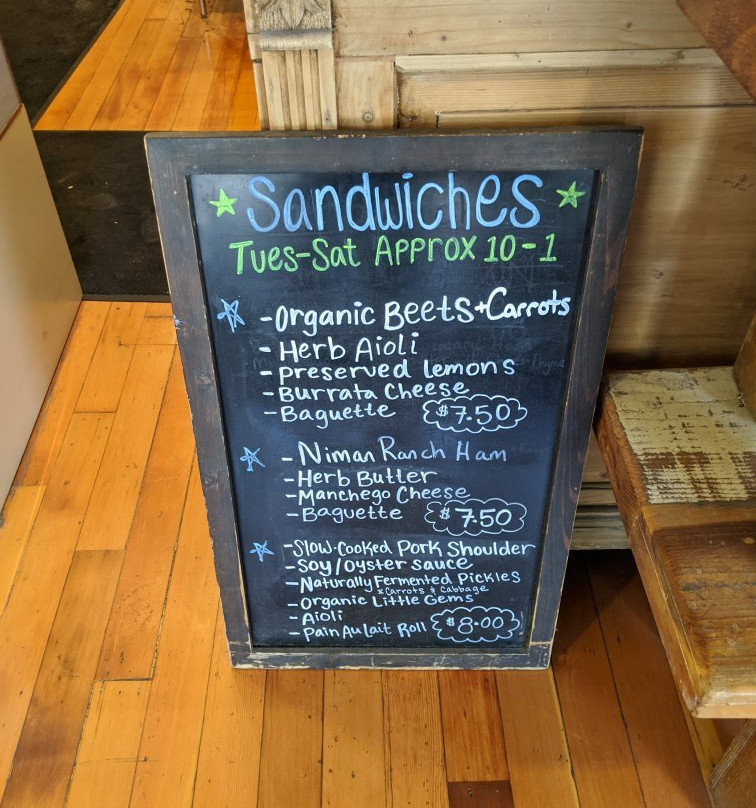 Sandwiches
Tues-Sat Approx 10-1
-Organic Beets+Carrots
-Herb Aioli
-preserved lemons
-Burrata Cheese
-Baguette $7.50
-Niman Ranch Ham
-Herb Butter
-Manchego Cheese
-Baguette $7.50
-Slow-Cooked Pork Shoulder
-Soy/oyster sauce
-Naturally Fermented Pickles
*Carrots & Cabbage
-Organic Little Gems
-Aioli
-Pain Au Lait Roll $8.00